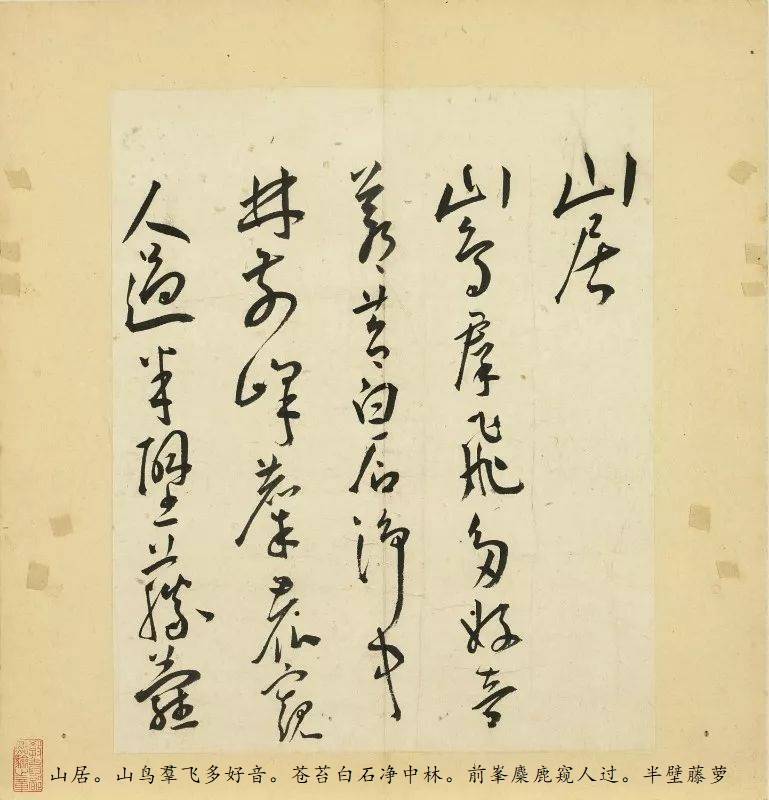 山居
山鳥羣飛多好音
蒼苔白石淨中
林前峰麋鹿窺
人過半壁藤蘿
山居。山鸟羣飞多好音。苍苔白石净中林。前峯麋鹿窥人过。半壁藤萝